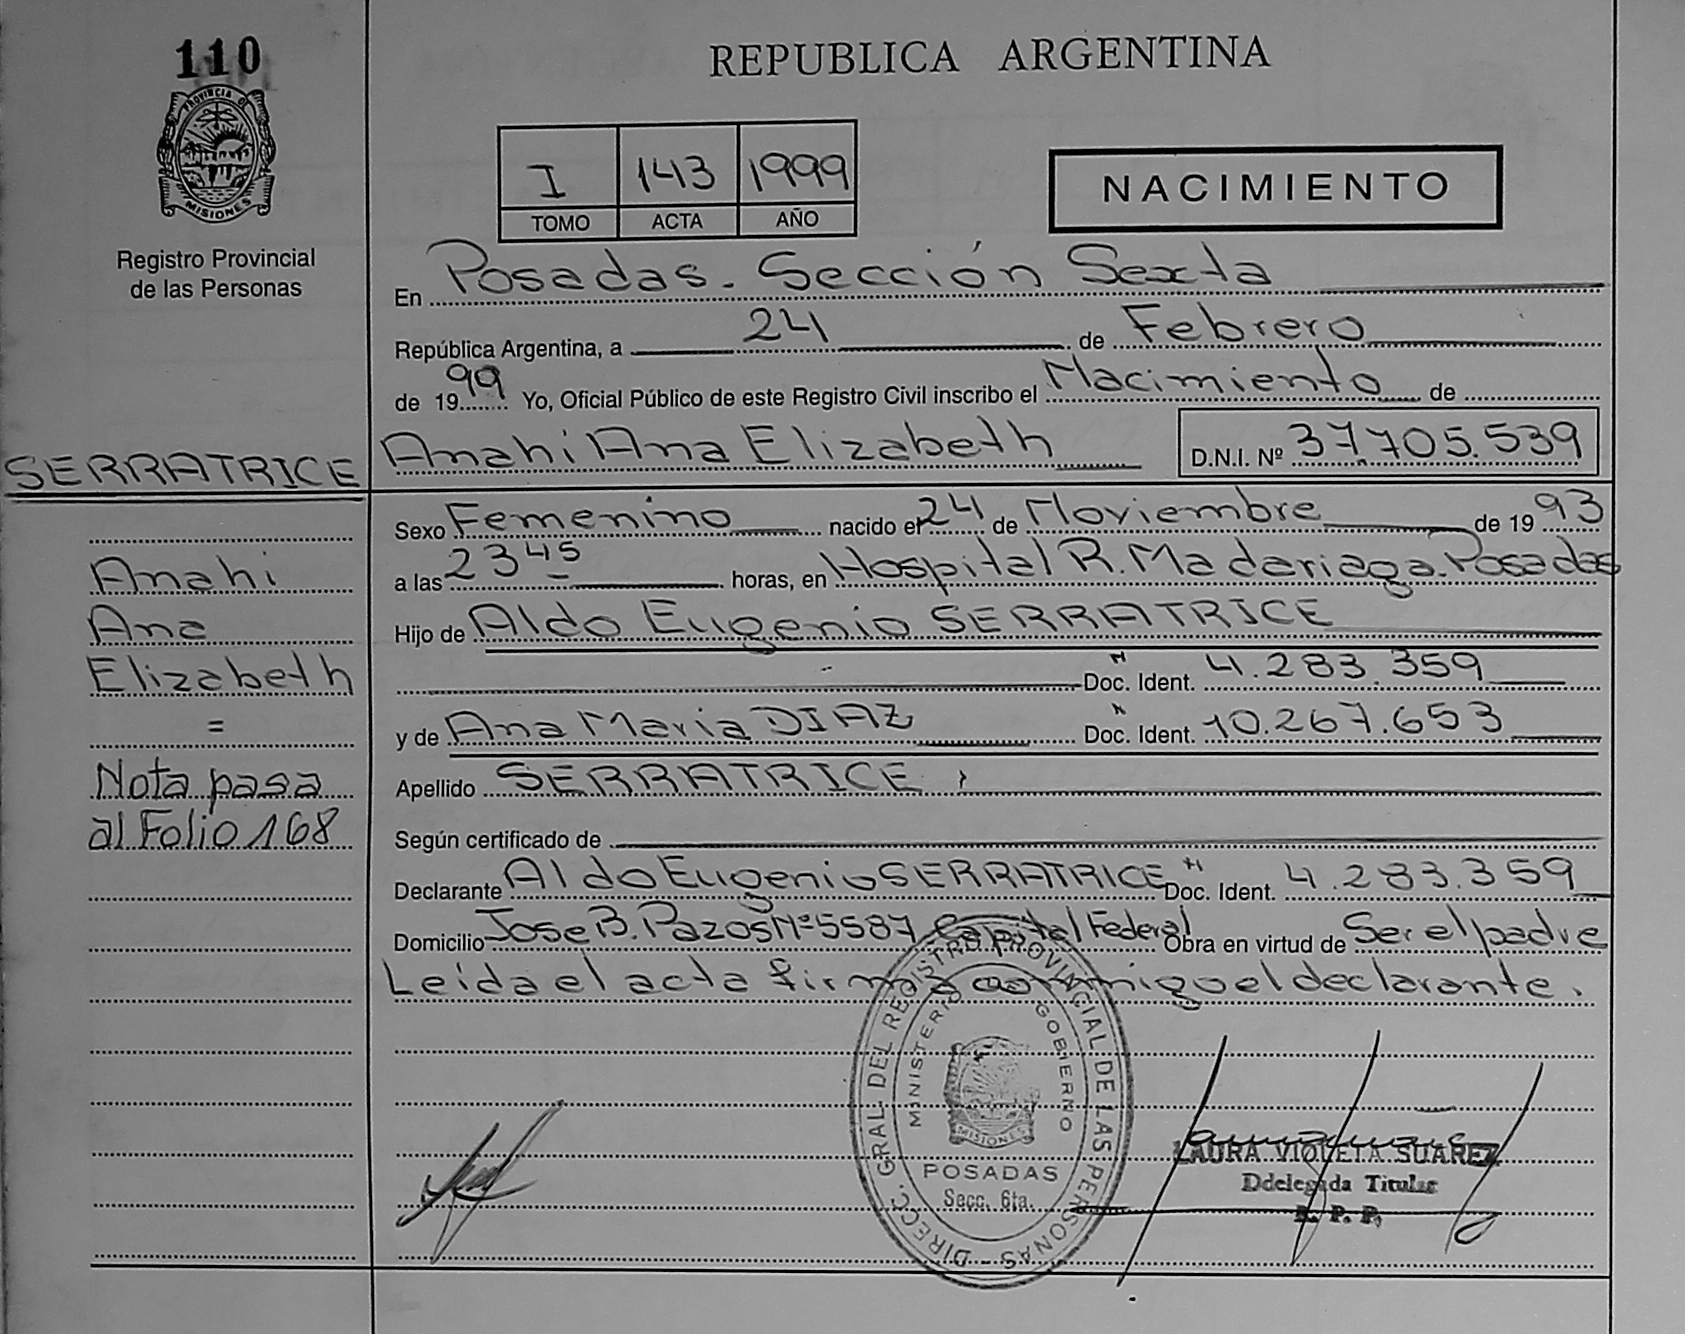 110
PROVINCIA D
MISIONES
Registro Provincial
de las Personas
REPUBLICA ARGENTINA
I 143 1999
TOMO ACTA AÑO
NACIMIENTO
En Posadas. Sección Sexta
República Argentina, a 24 de Febrero
de 1999 Yo, Oficial Público de este Registro Civil inscribo el Nacimiento de
SERRATRICE
Anahi Ana Elizabeth D.N.I. Nº 37.705.539
Sexo Femenino nacido el 24 de Noviembre de 1993
a las 23 45 horas, en Hospital R. Madariaga. Posadas
Hijo de Aldo Eugenio SERRATRICE
Doc. Ident. 4.283.359
y de Ana Maria DIAZ Doc. Ident. 10.267.653
Apellido SERRATRICE
Según certificado de
Declarante Aldo Eugenio SERRATRICE Doc. Ident. 4.283.359
Domicilio Jose B. Pazos Nº 5587 Capital Federal Obra en virtud de Ser el padre
Leída el acta firma conmigo el declarante.
Anahi
Ana
Elizabeth
=
Nota pasa
al Folio 168
DIRECC. GRAL. DEL REGISTRO PROVINCIAL DE LAS PERSONAS
MINISTERIO GOBIERNO
MISIONES
POSADAS
Secc. 6ta.
LAURA VIOLETA SUAREZ
Ddelegada Titular
R. P. P.